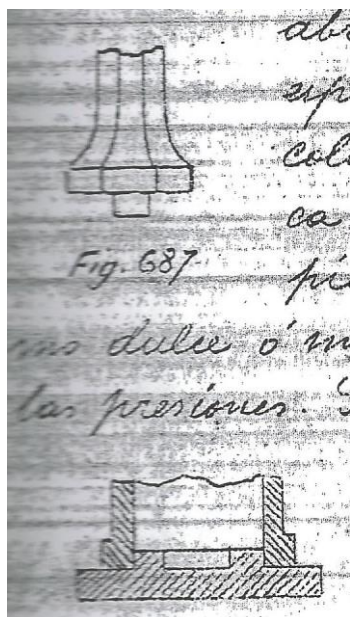 abr
sup
colu
ca
Fig. 687
pie
mo dulce ó m
las presiones.